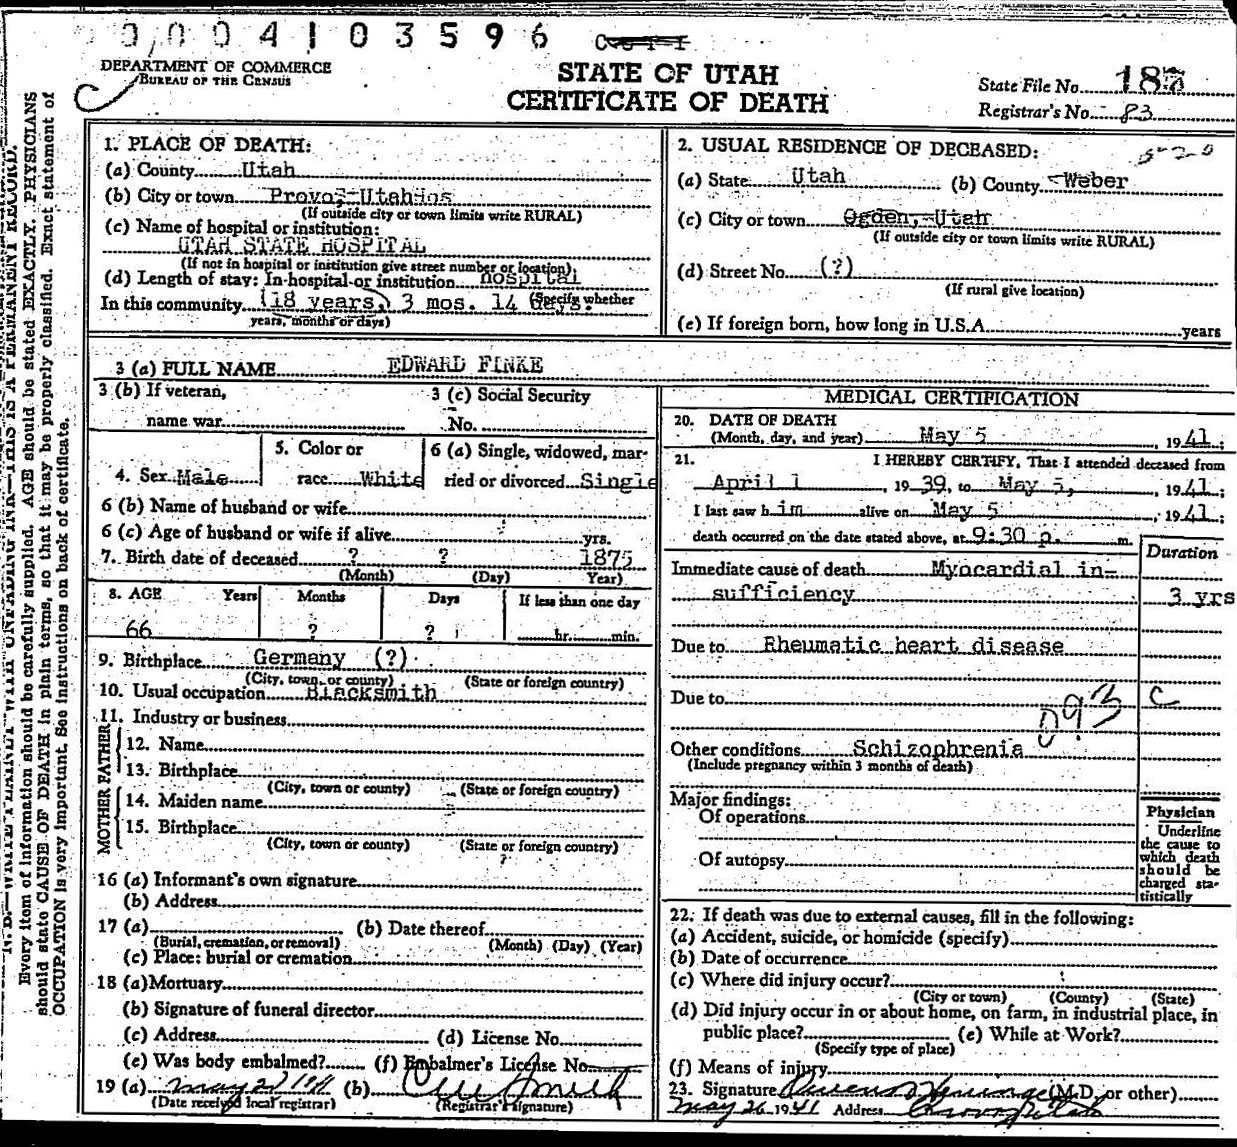 0004103596 COPY
DEPARTMENT OF COMMERCE
BUREAU OF THE CENSUS
STATE OF UTAH
CERTIFICATE OF DEATH
State File No.
Registrar's No. 83
N.B.—WRITE PLAINLY WITH UNFADING INK—THIS IS A PERMANENT RECORD.
Every item of information should be carefully supplied. AGE should be stated EXACTLY. PHYSICIANS
should state CAUSE OF DEATH in plain terms, so that it may be properly classified. Exact statement of
OCCUPATION is very important. See instructions on back of certificate.
1. PLACE OF DEATH:
(a) County Utah
(b) City or town Provo, Utah
(If outside city or town limits write RURAL)
(c) Name of hospital or institution:
UTAH STATE HOSPITAL
(If not in hospital or institution give street number or location)
(d) Length of stay: In hospital or institution hospital
In this community (18 years,) 3 mos. 14 days. (Specify whether
years, months or days)
2. USUAL RESIDENCE OF DECEASED:
(a) State Utah (b) County Weber
(c) City or town Ogden, Utah
(If outside city or town limits write RURAL)
(d) Street No. (?)
(If rural give location)
(e) If foreign born, how long in U.S.A. years
3 (a) FULL NAME EDWARD FINKE
3 (b) If veteran,
name war
3 (c) Social Security
No.
4. Sex Male
5. Color or
race White
6 (a) Single, widowed, mar-
ried or divorced Single
6 (b) Name of husband or wife
6 (c) Age of husband or wife if alive yrs.
7. Birth date of deceased ? ? 1875
(Month) (Day) Year)
8. AGE Years Months Days If less than one day
66 ? ? hr. min.
9. Birthplace Germany (?)
(City, town, or county) (State or foreign country)
10. Usual occupation Blacksmith
11. Industry or business
FATHER
12. Name
13. Birthplace
(City, town or county) (State or foreign country)
MOTHER
14. Maiden name
15. Birthplace
(City, town or county) (State or foreign country)
?
16 (a) Informant's own signature
(b) Address
17 (a) (b) Date thereof
(Burial, cremation, or removal) (Month) (Day) (Year)
(c) Place: burial or cremation
18 (a) Mortuary
(b) Signature of funeral director
(c) Address (d) License No.
(e) Was body embalmed? (f) Embalmer's License No.
19 (a) (b)
(Date received local registrar) (Registrar's signature)
MEDICAL CERTIFICATION
20. DATE OF DEATH
(Month, day, and year) May 5, 1941;
21. I HEREBY CERTIFY, That I attended deceased from
April 1, 1939, to May 5, 1941;
I last saw him alive on May 5, 1941;
death occurred on the date stated above, at 9:30 p. m.
Duration
Immediate cause of death Myocardial in-
sufficiency 3 yrs
Due to Rheumatic heart disease
Due to
093 C
Other conditions Schizophrenia
(Include pregnancy within 3 months of death)
Major findings:
Of operations
Of autopsy
Physician
Underline
the cause to
which death
should be
charged sta-
tistically
22. If death was due to external causes, fill in the following:
(a) Accident, suicide, or homicide (specify)
(b) Date of occurrence
(c) Where did injury occur?
(City or town) (County) (State)
(d) Did injury occur in or about home, on farm, in industrial place, in
public place? (e) While at Work?
(Specify type of place)
(f) Means of injury
23. Signature (M.D. or other)
May 26 1941 Address Provo, Utah